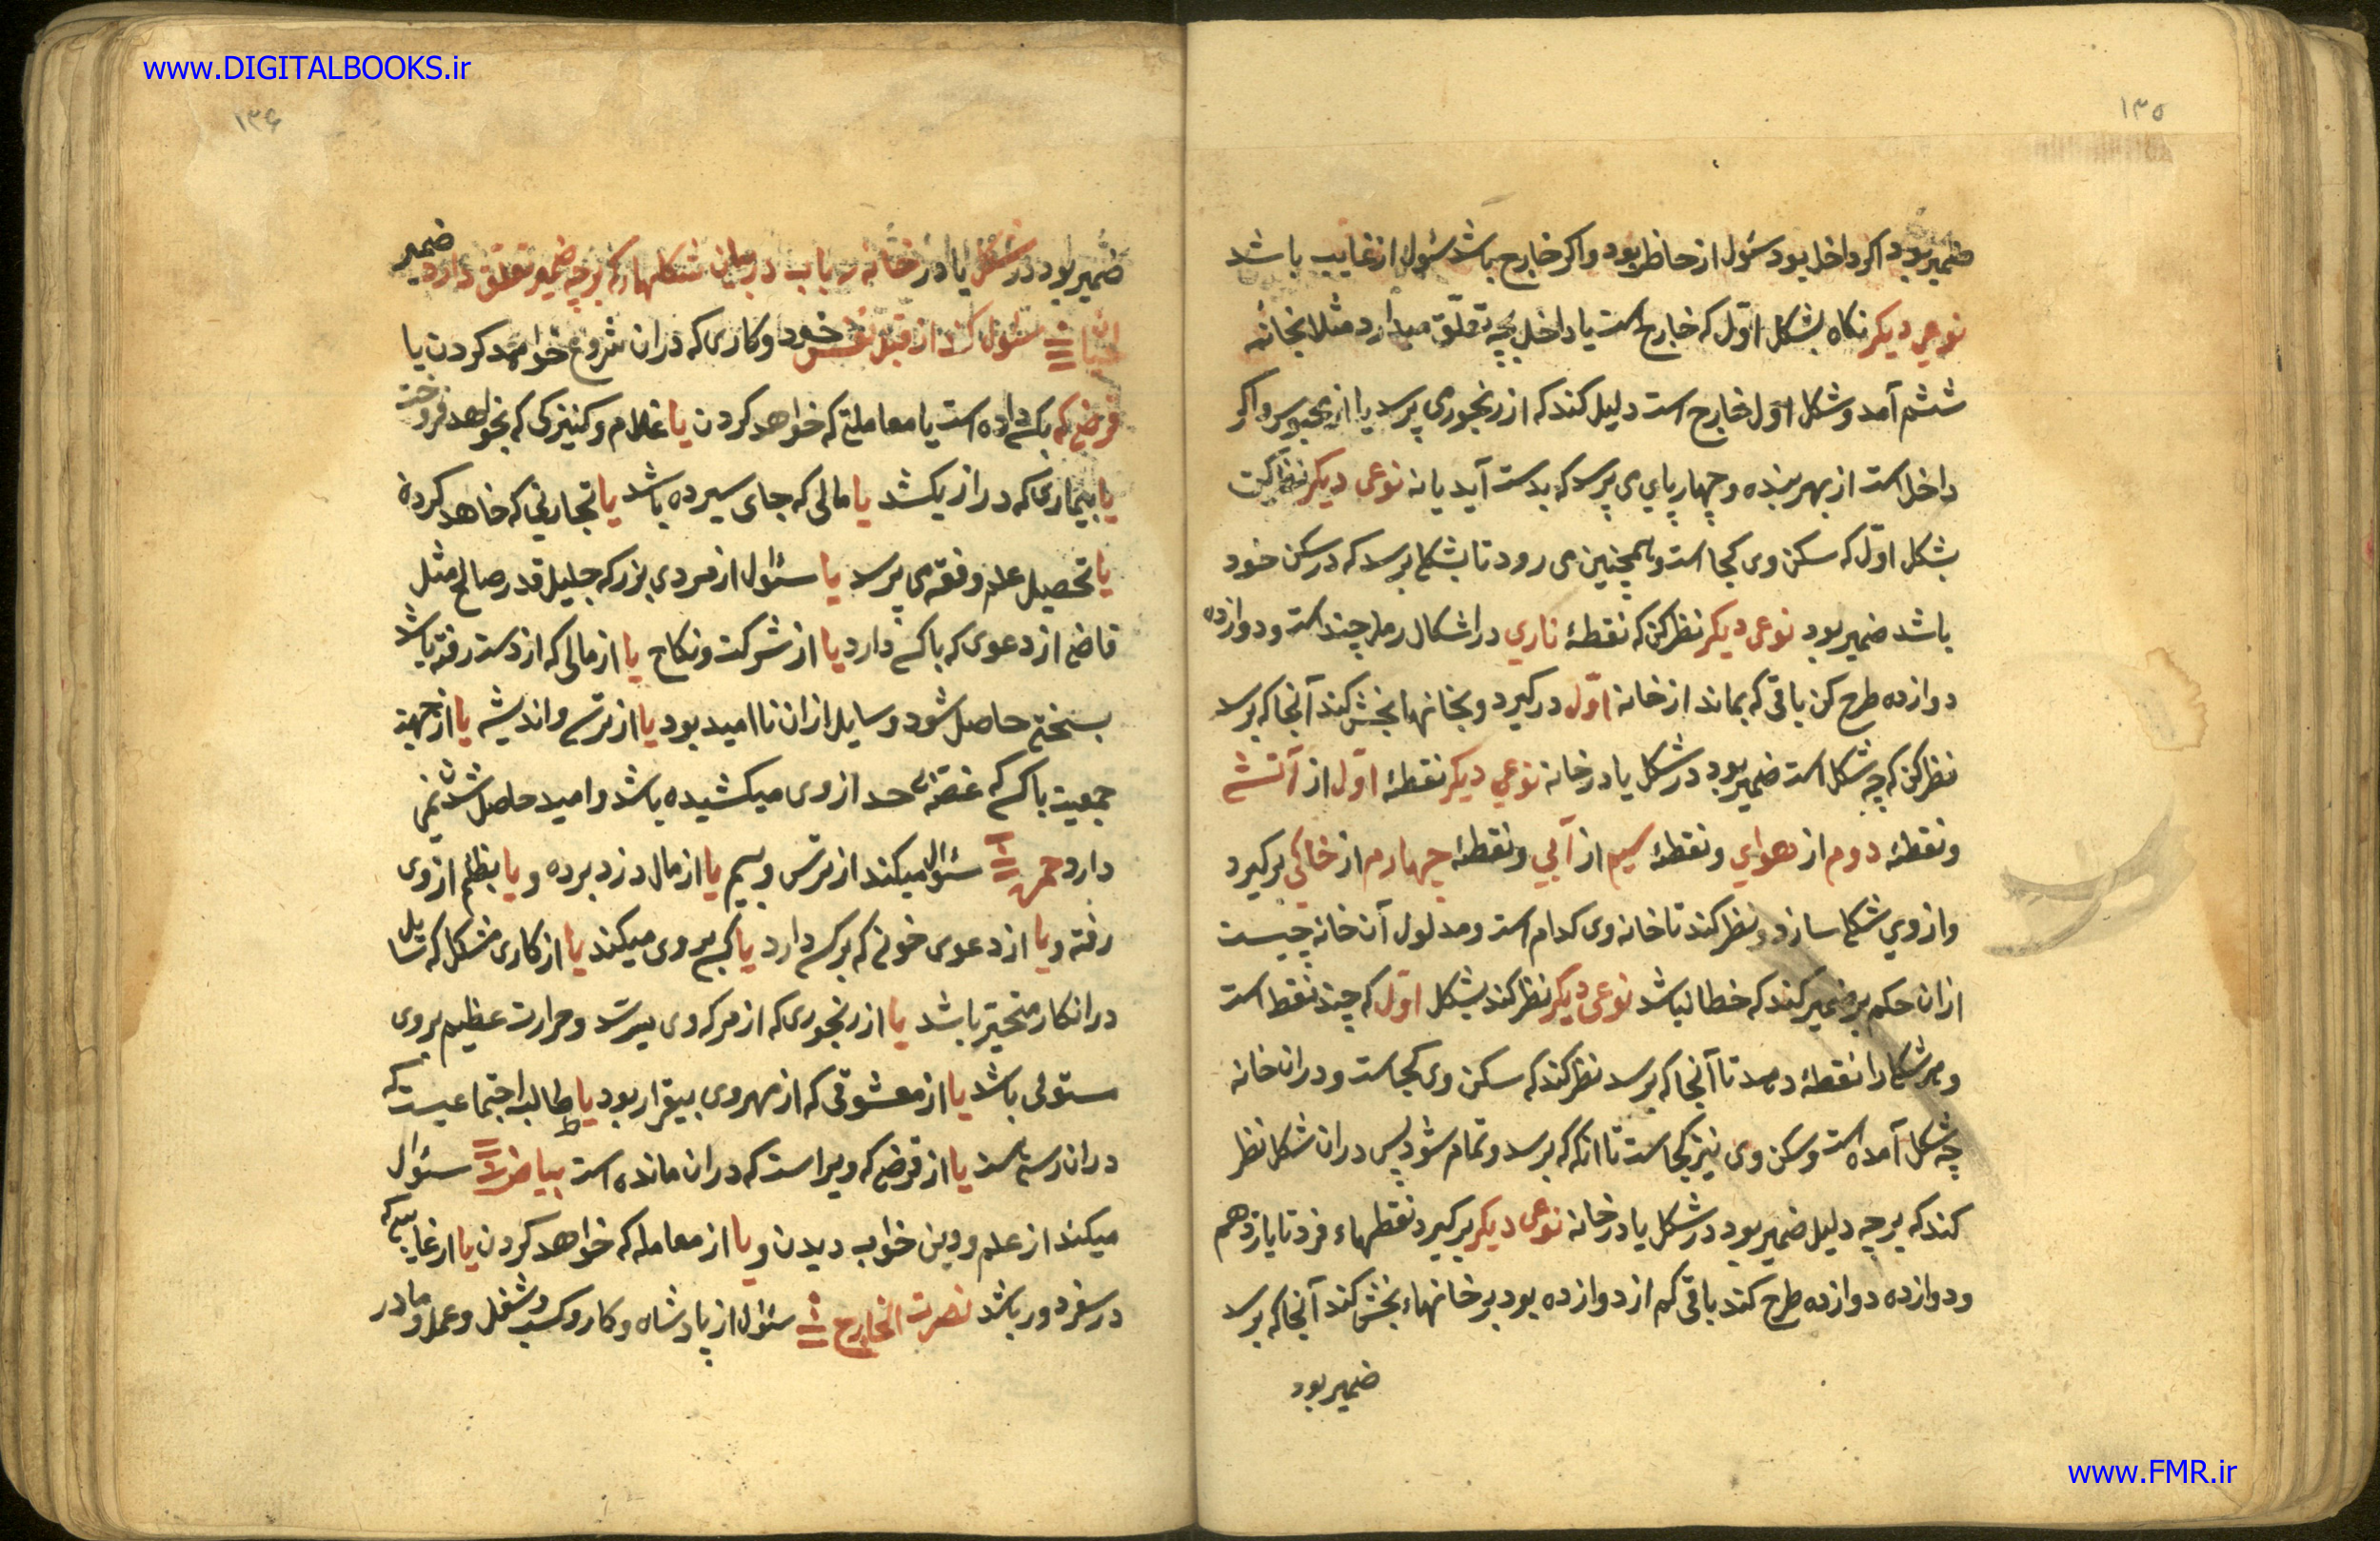 www.DIGITALBOOKS.ir
۱۳۵
ضمیر بود اکر داخل بود سئول از حاظر بود واکر خارج باشد سئول از غایب باشد
نوعی دیکر نکاه بشکل اوّل که خارج است یا داخل بچه تعلّق میدارد مثلا بخانهٔ
ششم آمد و شکل اول خارج است دلیل کند که از رنجوری پرسد یا از محبوس و اکر
داخل است از بهر بنده و چهارپای می پرسد که بدست آید یا نه نوعی دیکر نظر کن
بشکل اوّل که سکن وی کجا است وهمچنین می رود تا بشکلی برسد که در سکن خود
باشد ضمیر بود نوعی دیکر نظر کن که نقطهٔ ناری در اشکال رمل چند است و دوازده
دوازده طرح کن باقی که بماند از خانه اوّل درکیرد و بخانها بخش کند آنجا که برسد
نظر کن که چه شکل است ضمیر بود در شکل یا در خانه نوعی دیکر نقطهٔ اوّل از آتشی
ونقطهٔ دوم از هوای ونقطهٔ سیم از آبی ونقطهٔ چهارم از خاکی برکیرد
واز وی شکلی سازد و نظر کند تا خانه وی کدام است ومدلول آن خانه چیست
ازان حکم بر ضمیر کند که خطا نباشد نوعی دیکر نظر کند بشکل اوّل که چند نقط است
وهر شکلی را نقطهٔ دهد تا آنجا که برسد نظر کند که سکن وی کجاست ودران خانه
چه شکل آمده است وسکن وی نیز کجاست تا انکه که برسد وتمام شود پس دران شکل نظر
کند که بر چه دلیل ضمیر بود در شکل یا در خانه نوعی دیکر برکیرد نقطهاء فرد تا یازدهم
ودوازده دوازده طرح کند باقی کم از دوازده بود بر خانهاء بخش کند آنجا که برسد
ضمیر بود
۱۳۶
ضمیر بود در شکل یا در خانه باب در بیان شکلها که بر چه ضمیر تعلق دارد ضمیر
لحیان سئول کند از قبل نفس خود وکاری که دران شروع خواهد کردن یا
قرضی که بکسی داده است یا معاملتی که خواهد کردن یا غلام وکنیزکی که بخواهد فروخت
یا بیماری که دراز بکشد یا مالی که جای سپرده باشد یا تجارتی که خاهد کرد
یا تحصیل علم وفقه می پرسد یا سئول از مردی بزرک جلیل قدر صالح مثل
قاضی از دعوی که با کسی دارد یا از شرکت ونکاح یا از مالی که از دست رفته باشد
بسختی حاصل شود وسایل ازان ناامید بود یا از ترس واندیشه یا از جهة
جمعیت با کسی که غصّهٔ حد از وی میکشیده باشد وامید حاصل شدن نمی
دارد حمره سئوال میکند از ترس وبیم یا از مال دزد برده ویا بظلم از وی
رفته ویا از دعوی خونی که بر کسی دارد یا کسی بر وی میکند یا از کاری مشکل که سایل
در انکار متحیّر باشد یا از رنجوری که از مرک وی میترسد وحرارت عظیم بر وی
مستولی باشد یا از معشوقی که از مهر وی بیقرار بود یا طالب اجتماعیست که
دران رسته است یا از قرضی که ویراست که دران مانده است بیاض سئوال
میکند از علم ودین خواب دیدن ویا از معامله که خواهد کردن یا از غایبی که
در سفر دور باشد نصرت الخارج سئول از پادشاه وکار وکسب وشغل وعمل ومادر
www.FMR.ir